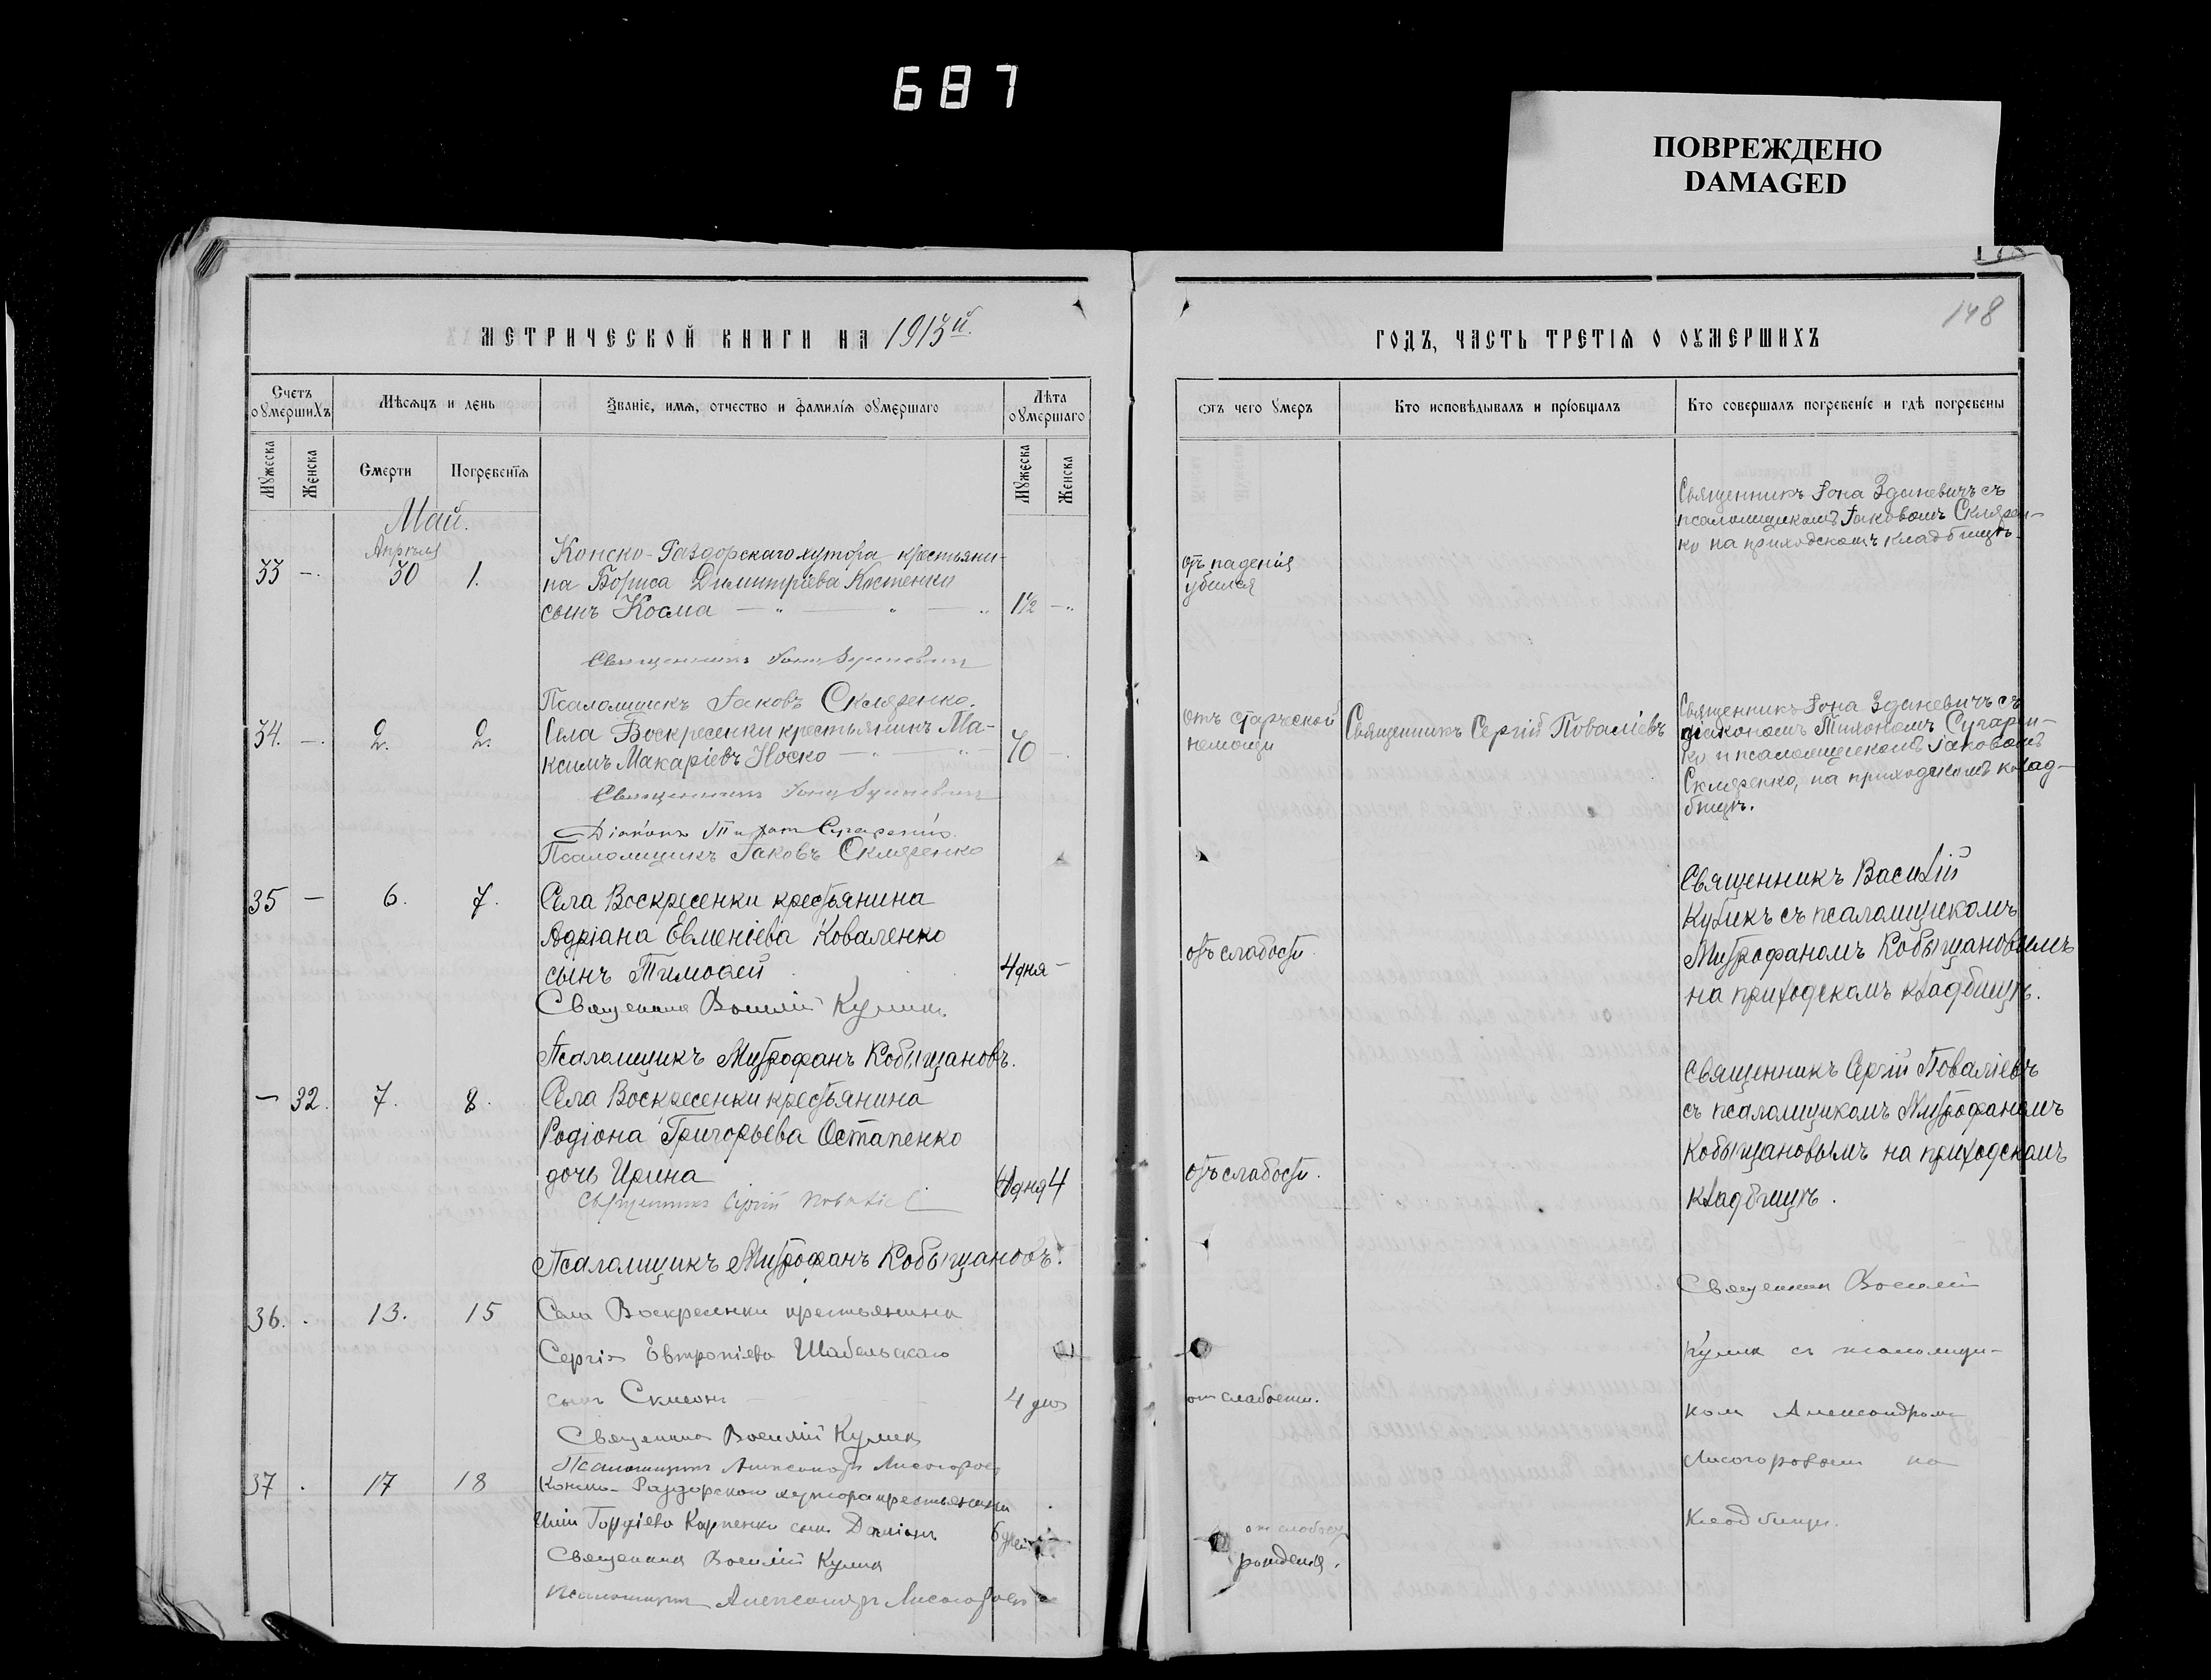 687
ПОВРЕЖДЕНО
DAMAGED
148
МЕТРИЧЕСКОЙ КНИГИ НА 1913й.
ГОДЪ, ЧАСТЬ ТРЕТІѦ О ОУМЕРШИХЪ
Счетъ оумершихъ
Мѣсяцъ и день
Званіе, имя, отчество и фамилія оумершаго
Лѣта оумершаго
отъ чего умеръ
Кто исповѣдывалъ и пріобщалъ
Кто совершалъ погребеніе и гдѣ погребены
Мужеска
Женска
Смерти
Погребенія
Мужеска
Женска
Май.
Апрѣля
33 — 30 1.
Конско-Раздорскаго хутора крестьяни-
на Бориса Димитріева Костенки
сынъ Косма
1½
отъ паденія
убился
Священникъ Іона Зданевичъ съ
псаломщикомъ Іаковомъ Скляре-
ко на приходскомъ кладбищѣ.
Священникъ Іона Зданевичъ
Псаломщикъ Іаковъ Скляренко.
34. — 2. 2.
Села Воскресенки крестьянинъ Ма-
ксимъ Макаріевъ Носко
70
отъ старческой
немощи
Священникъ Сергій Поваліевъ
Священникъ Іона Зданевичъ съ
діакономъ Тихономъ Сугарен-
ко и псаломщикомъ Іаковомъ
Скляренко, на приходскомъ клад-
бищѣ.
Священникъ Іона Зданевичъ
Діаконъ Тихонъ Сугаренко.
Псаломщикъ Іаковъ Скляренко
35 — 6. 7.
Села Воскресенки крестьянина
Адріана Евменіева Коваленко
сынъ Тимоѳей
4 дня —
отъ слабости.
Священникъ Василій
Куликъ съ псаломщикомъ
Митрофаномъ Кобыщановымъ
на приходскомъ кладбищѣ.
Священникъ Василій Куликъ
Псаломщикъ Митрофанъ Кобыщановъ.
— 32. 7. 8.
Села Воскресенки крестьянина
Родіона Григорьева Остапенко
дочь Ирина
дня 4
отъ слабости.
Священникъ Сергій Поваліевъ
съ псаломщикомъ Митрофаномъ
Кобыщановымъ на приходскомъ
кладбищѣ.
Священникъ Сергій Поваліевъ
Псаломщикъ Митрофанъ Кобыщановъ.
36. . 13. 15
Села Воскресенки крестьянина
Сергія Евтропіева Шабельскаго
сынъ Симеонъ
4 дня
отъ слабости.
Священникъ Василій
Куликъ съ псаломщи-
комъ Александромъ
Лисогоровымъ на
кладбищѣ.
Священникъ Василій Куликъ
Псаломщикъ Александръ Лисогоровъ
37 . 17 18
Конско-Раздорскаго хутора крестьянина
Гордіева Карпенко сынъ
6 дней
отъ слабости
рожденія.
Священникъ Василій Куликъ
Псаломщикъ Александръ Лисогоровъ